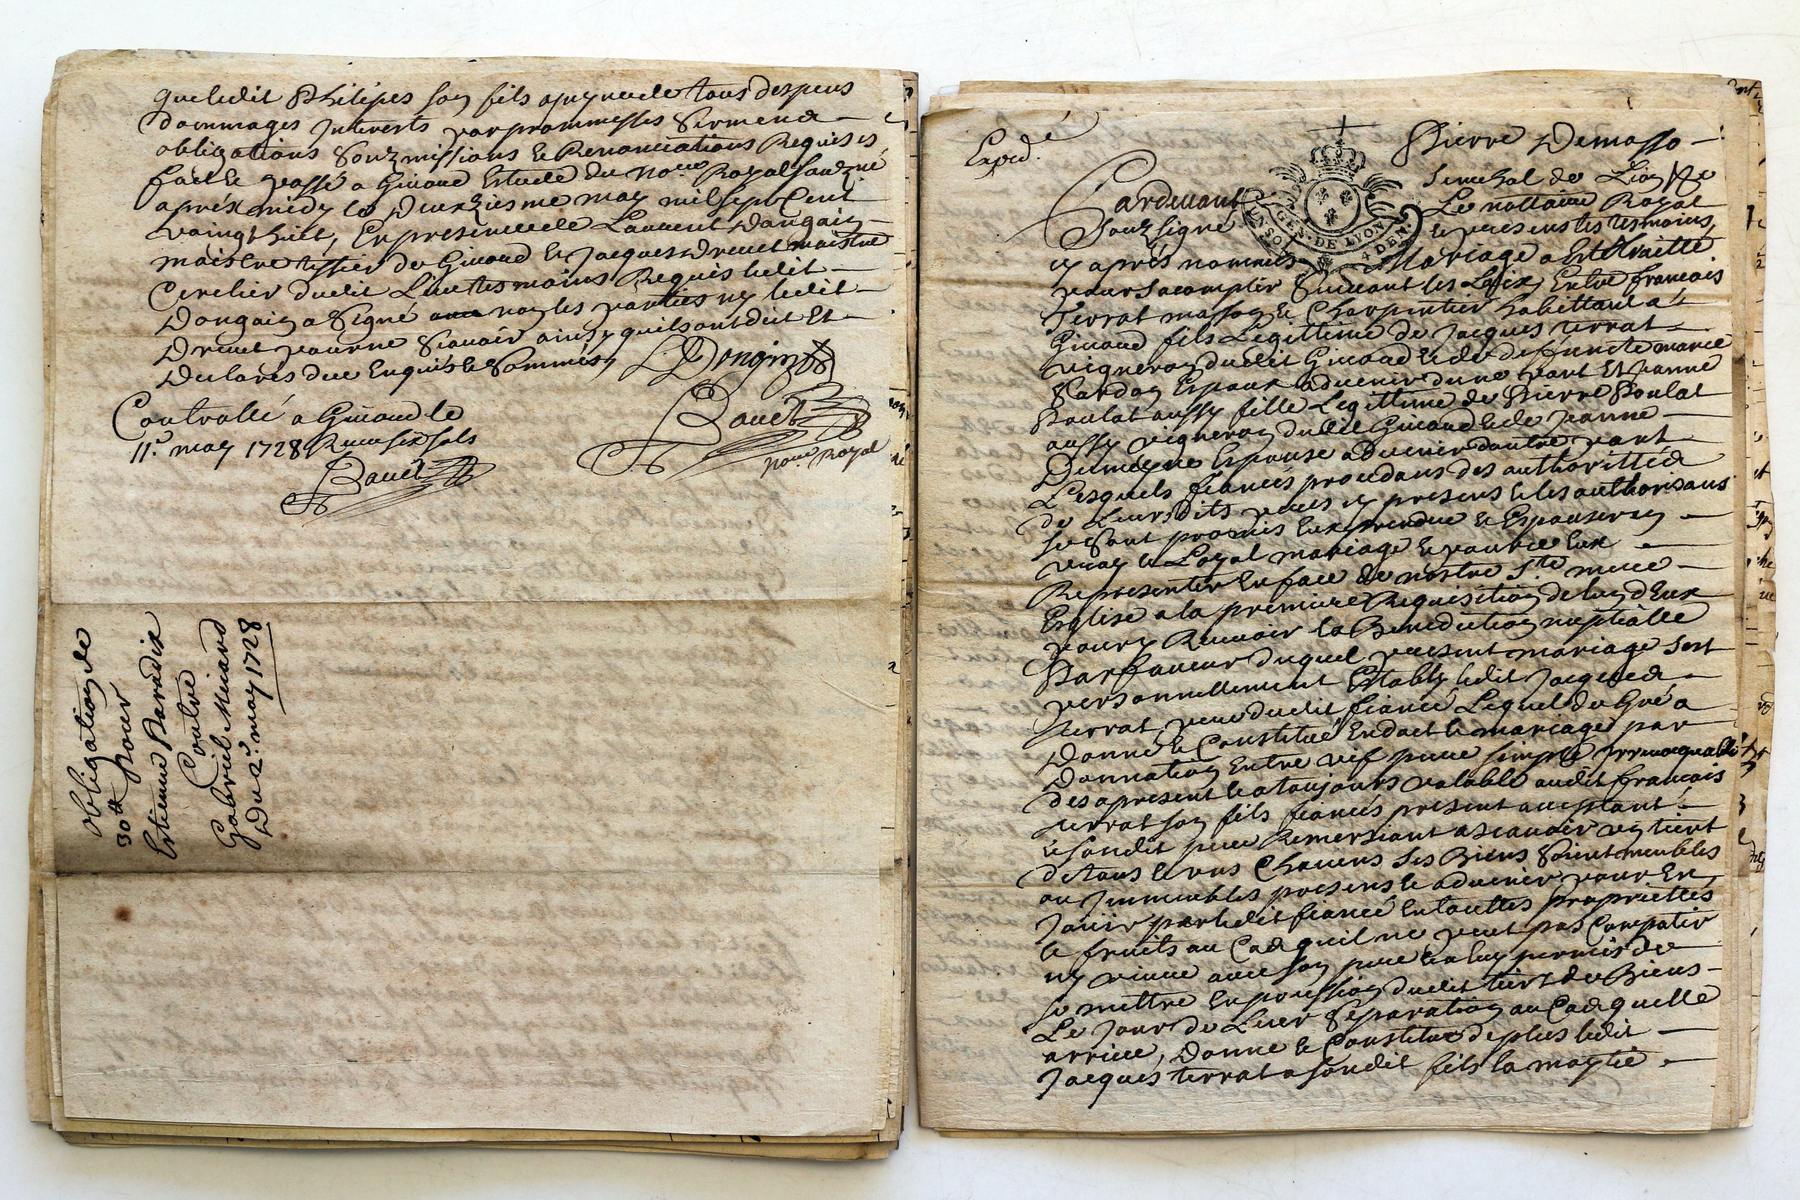 que ledit Philipes son fils a peyne de tous despens
dommages Interests par prommesses Serment
obligations Soubzmissions et Renonciations Requises
fait et passé a Givord Estude du no.re Royal soubzné
aprés midy le Deuxiesme may mil sept Cent
vaingthuit, En presence de Laurent Dongain
maistre tissier de Givord et Jacques Drevet maistre
Cerclier dudit Lieu tesmoins Requis ledit
Dongain a Signé non les parties ny ledit
Drevet pour ne Scavoir ainsy quils ont dit Et
declaré de ce Enquis et Sommés
L Dongin
Bauet
no.re Royal
Controllé a Givord le
11.e may 1728 Receu six sols
Bauet
obligation de
30tt pour
Estienne Paradix
Contre
Gabriel Minard
Du 2.e may 1728
Exped.é
Pierre Demasso
Senechal de Lion
Pardevant Le nottaire Royal
Soubzsigné et presens les tesmoins
cy aprés nommés Mariage a Esté traitté
pour s'acomplir Suivant les Loix, Entre francois
terrat masson et Charpentier habittant a
Givord fils Legittime de Jacques terrat
vigneron dudit Givord et de deffuncte
Espoux advenir dune part Et Jeanne
Poulat aussy fille Legittime de Pierre Poulat
aussy vigneron dudit Givord et de Jeanne
Espouse advenir dautre part
Lesquels fiancés procedans des authorittés
de Leursdits peres cy presens et les authorisans
se Sont promis Eux prendre et Espouser en
vray et Loyal mariage et pour ce Eux
Representer En face de nostre S.te mere
Esglise a la premiere Requisition de lun d'Eux
pour y Recevoir la Benediction nuptialle
Par faveur duquel present mariage sest
personnellement Estably ledit Jacques
terrat pere dudit fiancé Lequel de Gré a
Donné et Constitué En dot et mariage par
Donnation Entre vif pure simple Irrevoquable
des apresent et a toujours valable audit francois
terrat son fils fiancé present acceptant
et sondit pere Remersiant ascavoir un tiert
de tous et uns Chacuns Ses Biens Soient meubles
ou Immeubles presens et advenir pour En
Jouir par ledit fiancé En touttes propriettés
et fruits au Cas quil ne peut pas Compatir
ny vivre avec son pere et a luy permis de
se mettre En possession dudit tiert de Biens
Le Jour de Leur Separation au Cas quelle
arrive, Donne et Constitue de plus ledit
Jacques terrat a sondit fils la moytié